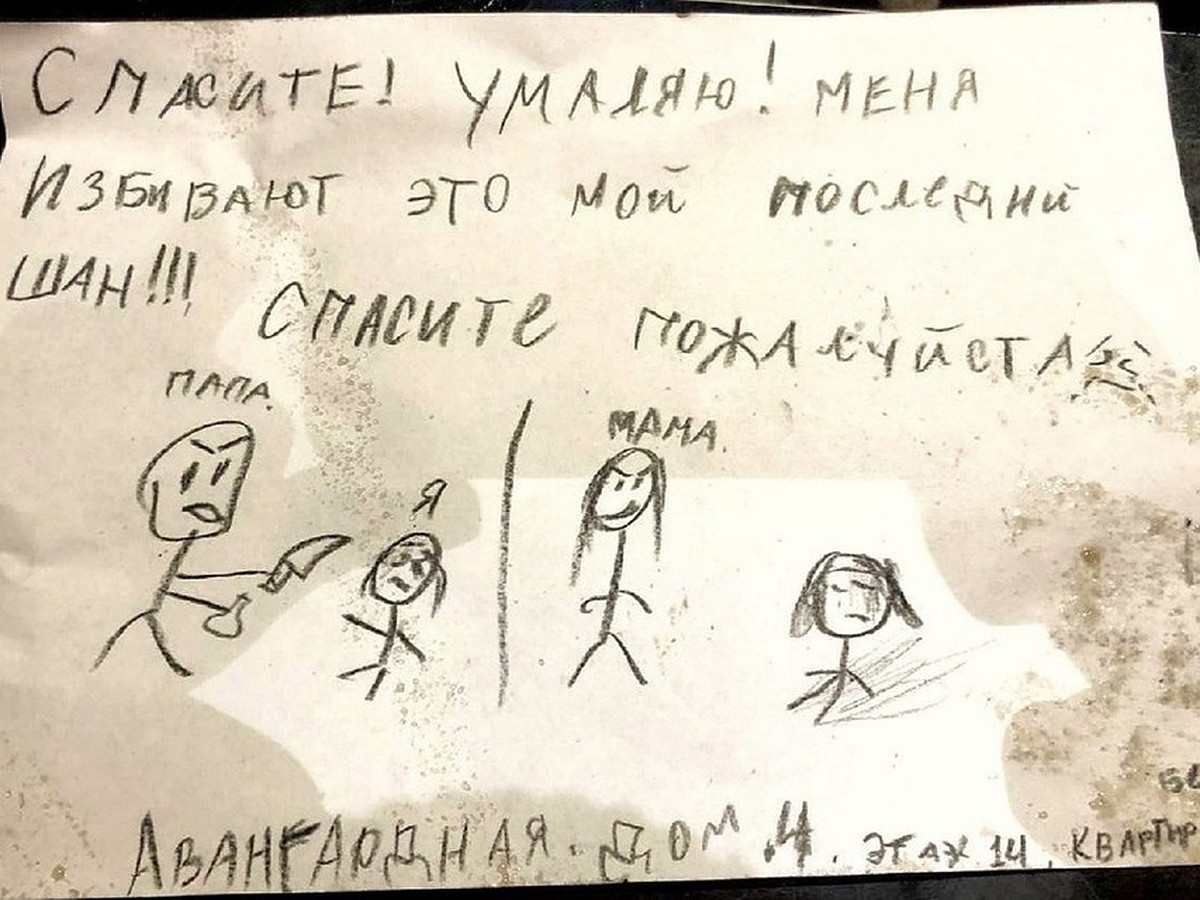 СПАСИТЕ! УМАЛЯЮ! МЕНЯ
ИЗБИВАЮТ ЭТО МОЙ ПОСЛЕДНИЙ
ШАН!!!
СПАСИТЕ ПОЖАЛУЙСТА
ПАПА.
Я
МАМА.
АВАНГАРДНАЯ. ДОМ 4. ЭТАЖ 14. КВАРТИР